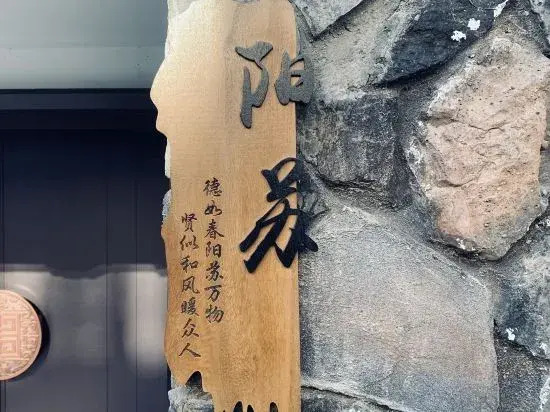 阳苏
德如春阳苏万物
贤似和风暖众人